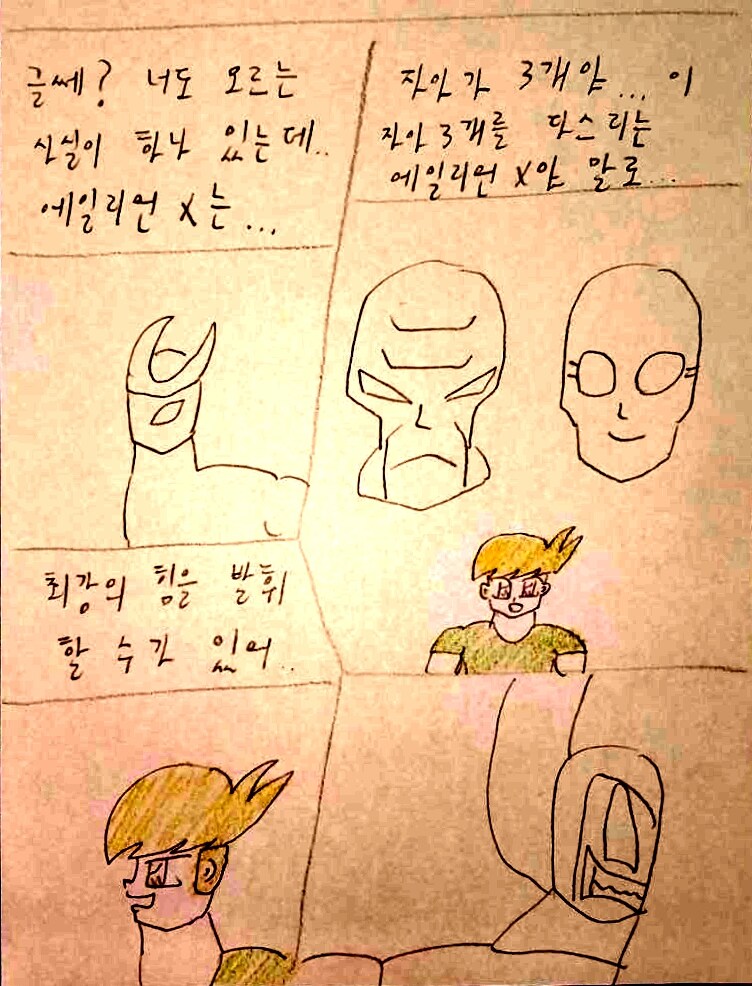 글쎄? 너도 모르는
사실이 하나 있는데..
에일리언 X는...
자아가 3개야... 이
자아 3개를 다스리는
에일리언 X야 말로...
최강의 힘을 발휘
할 수가 있어..